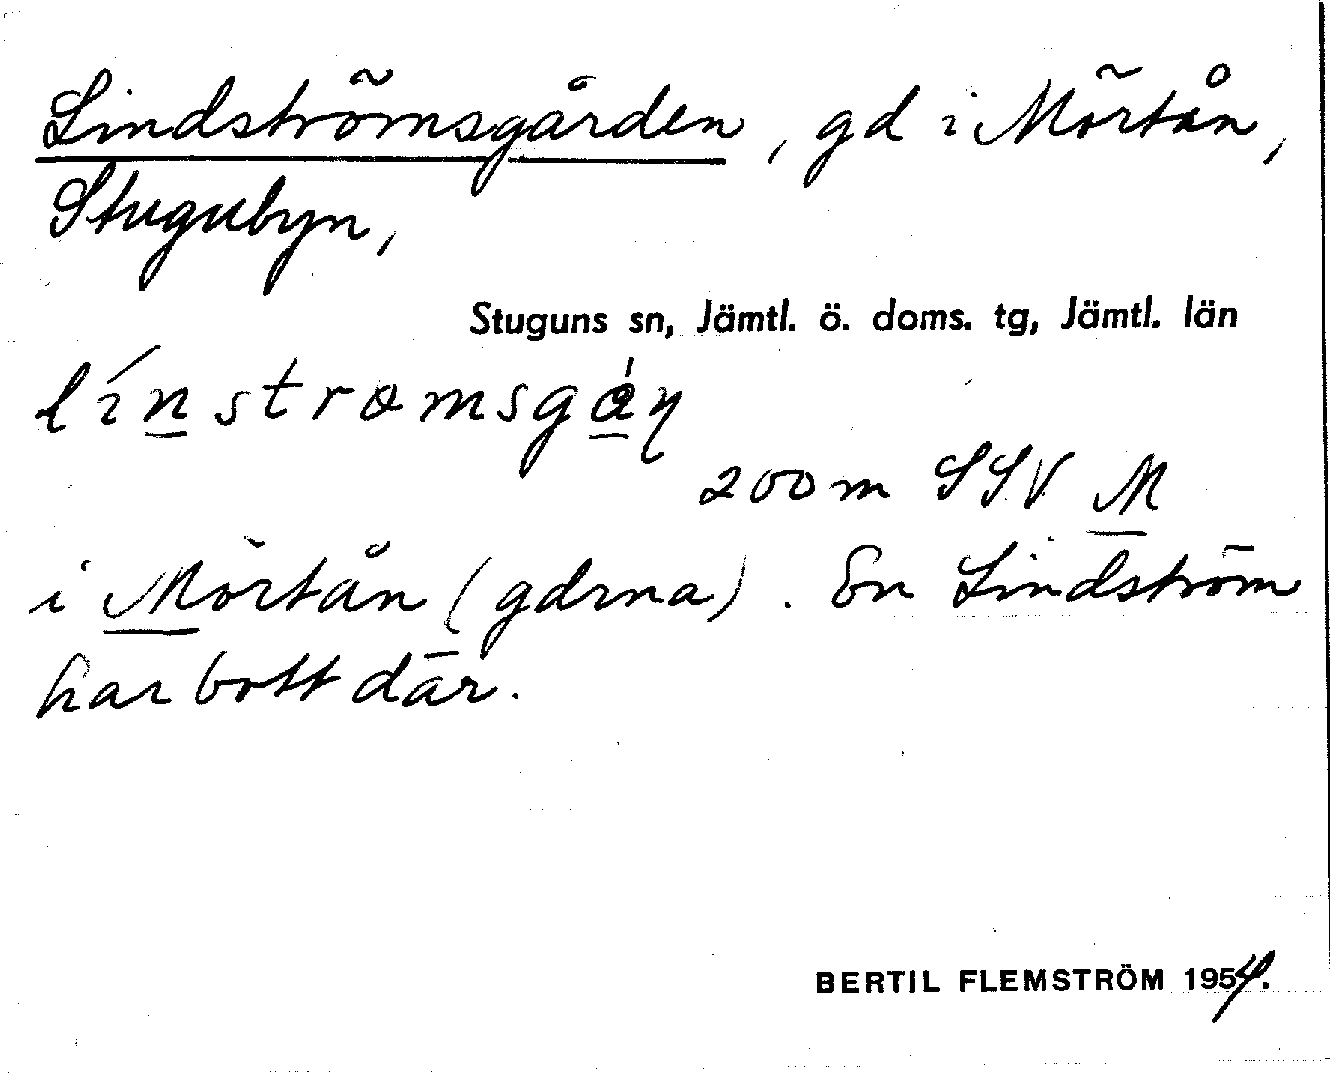 Lindströmsgården, gd i Mörtån,
Stugubyn,
Stuguns sn, Jämtl. ö. doms. tg, Jämtl. län
200 m SSV M
i Mörtån (gdrna). En Lindström
har bott där.
BERTIL FLEMSTRÖM 1954.